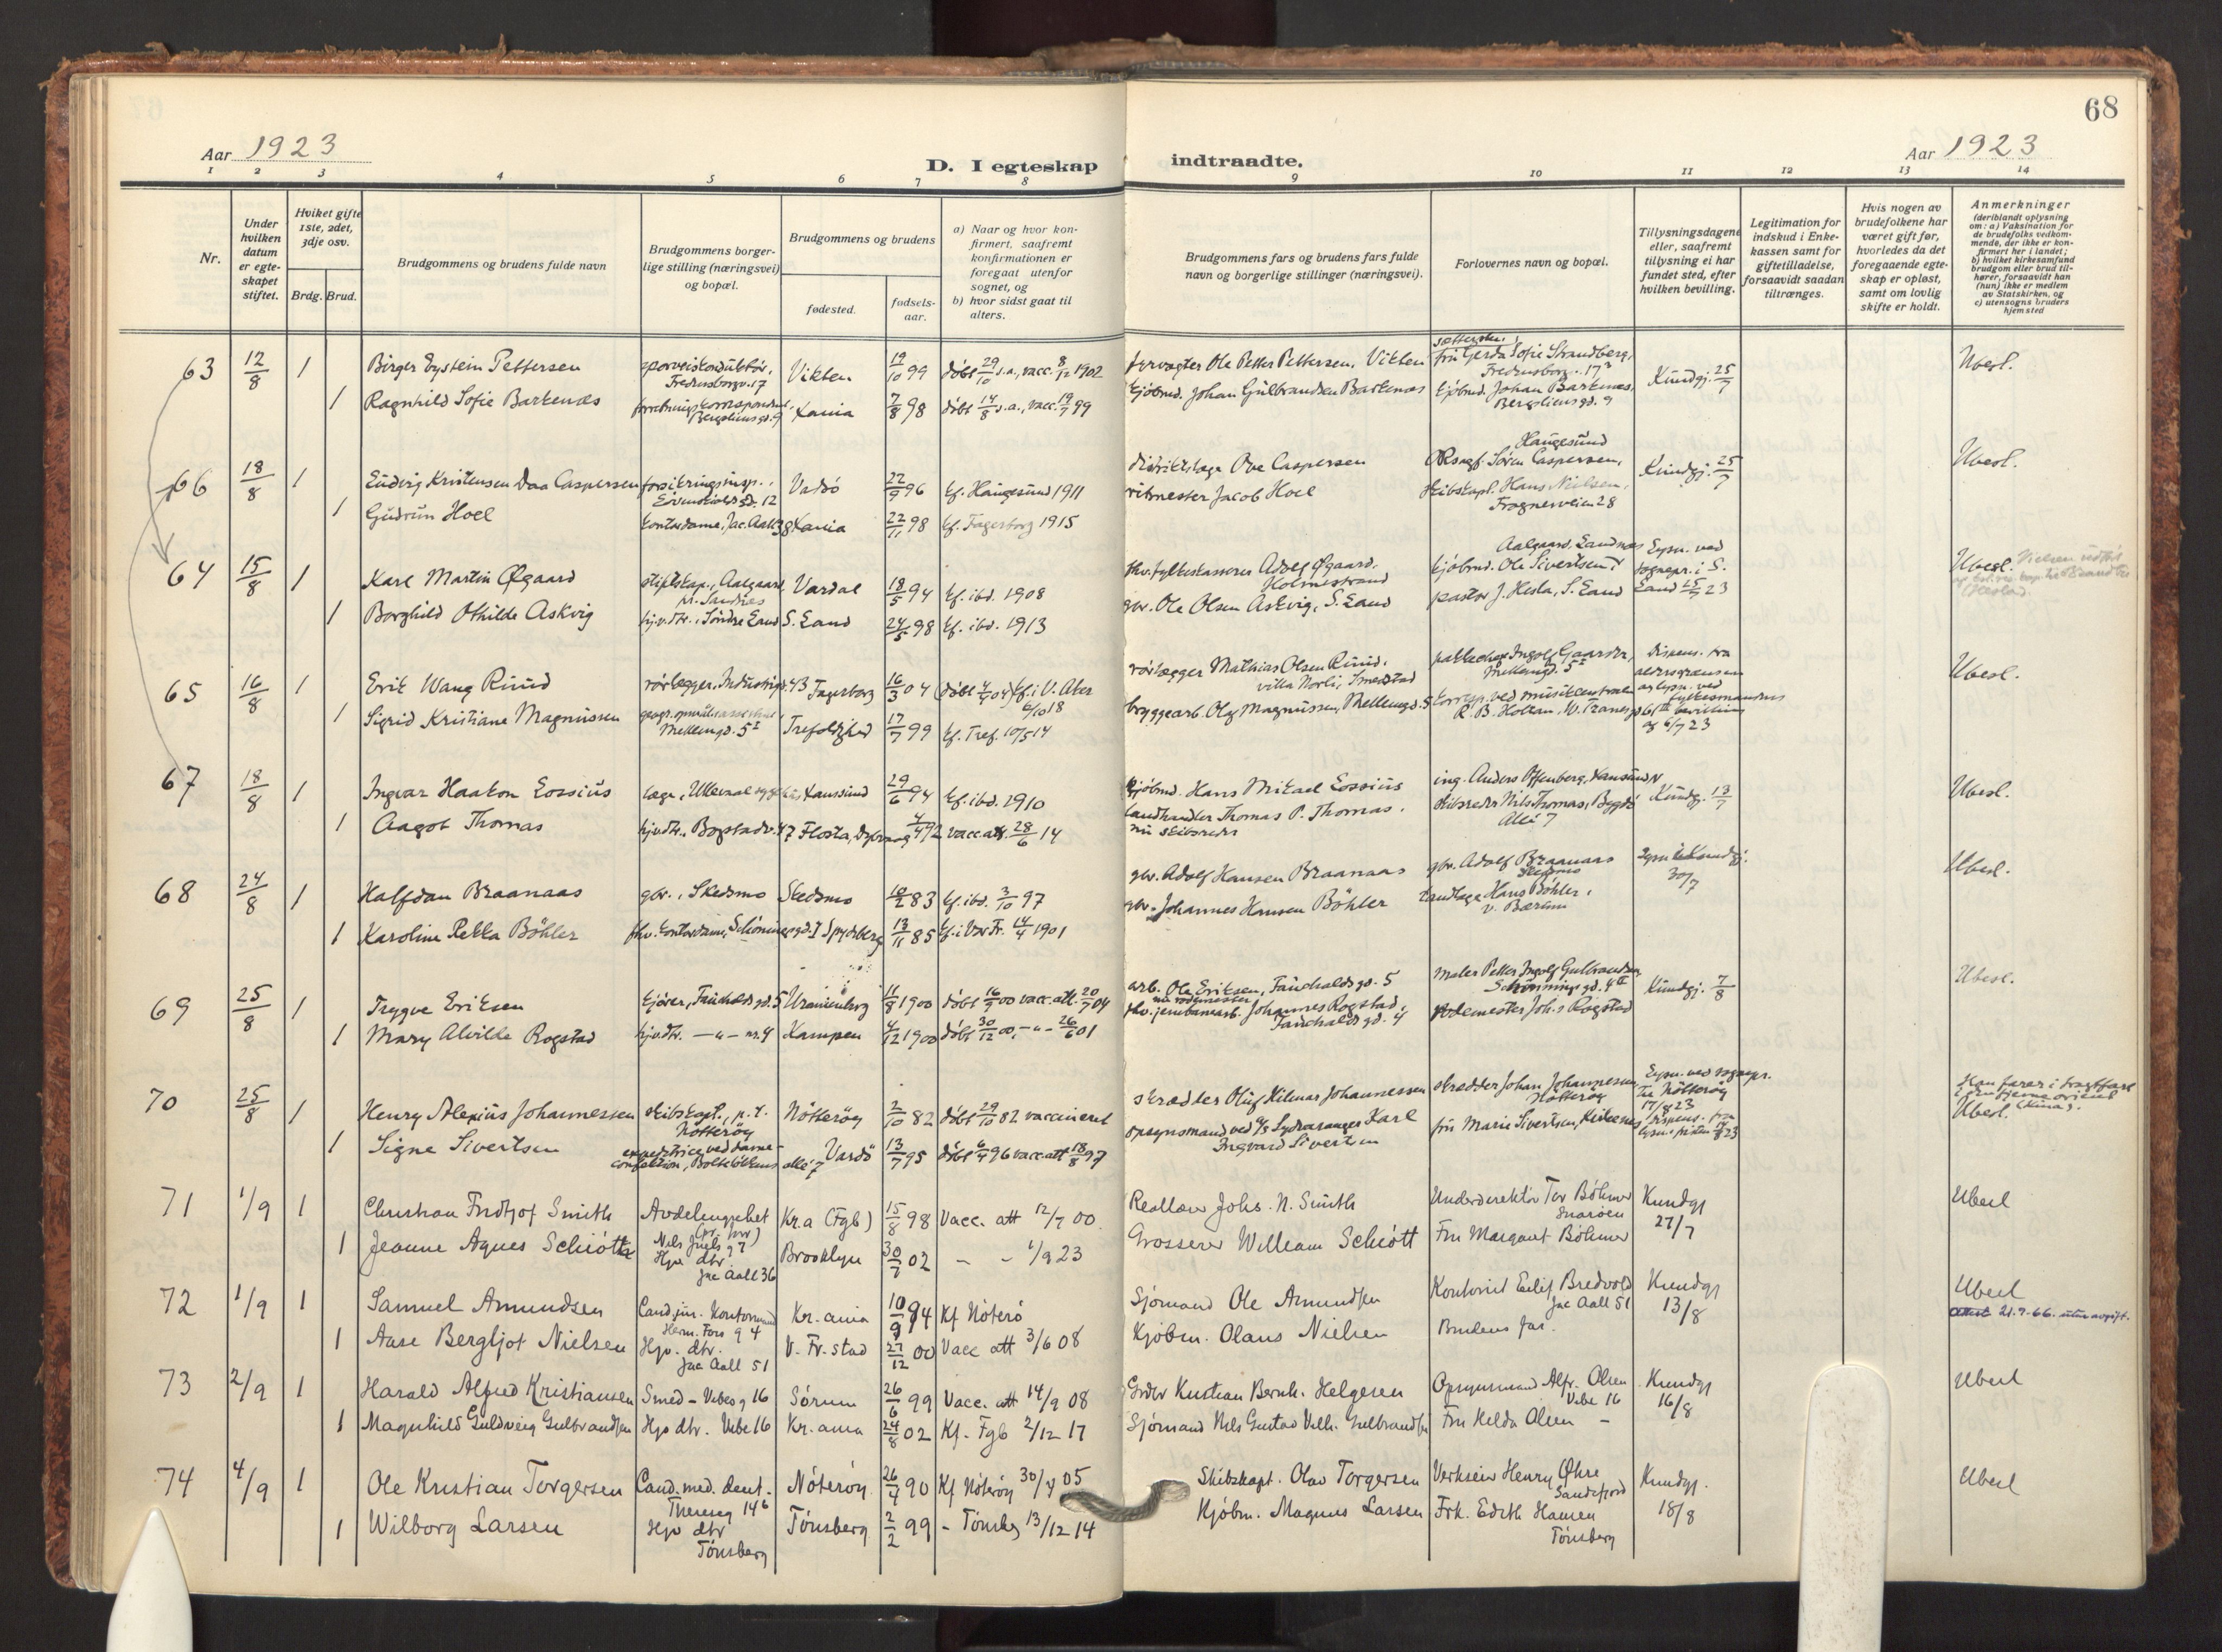 68
Aar 1923
D. I egteskap indtraadte.
Aar 1923
1 2 3 4 5 6 7 8 9 10 11 12 13 14
Nr.
Under hvilken datum er egteskapet stiftet.
Hviket gifte 1ste, 2det, 3dje osv.
Brdg. Brud.
Brudgommens og brudens fulde navn
Brudgommens borgerlige stilling (næringsvei) og bopæl.
Brudgommens og brudens
fødested.
fødselsaar.
a) Naar og hvor konfirmert, saafremt konfirmationen er foregaat utenfor sognet, og
b) hvor sidst gaat til alters.
Brudgommens fars og brudens fars fulde navn og borgerlige stillinger (næringsvei).
Forlovernes navn og bopæl.
Tillysningsdagene eller, saafremt tillysning ei har fundet sted, efter hvilken bevilling.
Legitimation for indskud i Enkekassen samt for giftetilladelse, forsaavidt saadan tiltrænges.
Hvis nogen av brudefolkene har været gift før, hvorledes da det foregaaende egteskap er opløst, samt om lovlig skifte er holdt.
Anmerkninger
(deriblandt oplysning om: a) Vaksination for de brudefolks vedkommende, der ikke er konfirmert her i landet; b) hvilket kirkesamfund brudgom eller brud tilhører, forsaavidt han (hun) ikke er medlem av Statskirken, og c) utensogns bruders hjemsted
63 12/8 1 Birger Eystein Pettersen sporveiskonduktør, Fredensborgv. 17 Vikten 19/10 99 døbt 29/10 s.a., vacc. 8/12 1902 fyrvogter Ole Petter Pettersen, Vikten fru Gerda Sofie Strandberg, Fredensborgv. 17 Kundgj. 25/7 Ubesl.
1 Ragnhild Sofie Barkenæs Bergsliensgd. 9 Kania 7/8 98 døbt 14/8 s.a., vacc. 19/7 99 kjøbmd. Johan Gulbrandsen Barkenæs kjøbmd. Johan Barkenæs, Bergsliensgd. 9
66 18/8 1 Ludvig Kristensen Daa Caspersen forsikringsinsp., 12 Vadsö 22/9 96 kf. Haugesund 1911 distriktslæge Ove Caspersen Søren Caspersen, Haugesund Kundgj. 25/7 Ubesl.
1 Gudrun Hoel kontordame, Jac. Aall 38 Kania 22/11 98 kf. Fagerborg 1915 ritmester Jacob Hoel skibskapt. Hans Nielsen, Frognerveien 28
64 15/8 1 Karl Martin Øgaard Aalgaard pr. Sandnes Vardal 18/5 94 kf. ibd. 1908 fhv. fylkeskasserer Adolf Øgaard, Holmestrand kjøbmd. Ole Sivertsen Lysn. ved sognepr. i S. Land 25/7 23 Ubesl.
1 Borghild Othilde Askvig hjv. dtr., Søndre Land S. Land 24/5 98 kf. ibd. 1913 gbr. Ole Olsen Askvig, S. Land pastor J. Hesla, S. Land
65 16/8 1 Erik Wang Ruud rörlægger, Industrigt. 43 Fagerborg 16/3 04 (døbt 4/4 04) kf. i V. Aker 6/10 18 rörlægger Mathias Olsen Ruud, villa Norli, Smedstad Mellemgd. 5 I Dispens. fra aldersgrænsen og lysn. ved fylkesmandens bevilling af 6/7 23 Ubesl.
1 Sigrid Kristiane Magnussen Mellemgd. 5 I Trefoldighed 17/7 99 kf. Tref. 10/5 14 bryggearb. Olaf Magnussen, Mellemgd. 5
67 18/8 1 Ingvar Haakon Lossius læge, Ullevaal sygehus Kanssund 29/6 94 kf. ibd. 1910 kjøbmd. Hans Mikael Lossius ing. Anders Offenberg, Kanssund N Kundgj. 13/7 Ubesl.
1 Aagot Thomas hjv. dtr., Bogstadv. 47 Flosta, Dypvaag 4/4 92 vacc. att. 28/6 14 landhandler Thomas P. Thomas, nu skibsreder skibsreder Nils Thomas, Bygdö Allé 7
68 24/8 1 Halfdan Braanaas gbr., Skedsmo Skedsmo 18/2 83 kf. ibd. 3/10 97 gbr. Adolf Hansen Braanaas gbr. Adolf Braanaas Skedsmo 30/7 Ubesl.
1 Karoline Petra Böhler fhv. kontordame, Schöningsgd. I Spydeberg 13/11 85 kf. i Vor Fr. 14/4 1901 gbr. Johannes Hansen Böhler tandlæge Hans Böhler, V. Bærum
69 25/8 1 Trygve Eriksen kjører, Fauchaldsgd. 5 Uranienborg 11/8 1900 døbt 16/9 00 vacc. att. 20/7 04 arb. Ole Eriksen, Fauchaldsgd. 5 maler Petter Ingolf Gulbrandsen Schøningsgd. 4 II Kundgj. 7/8 Ubesl.
1 Mary Alvilde Rogstad hjv. dtr. — " — nr. 4 Kampen 4/12 1900 døbt 30/12 00, - " - 26/6 01 fhv. jernbanearb. nu rodemester Johannes Rogstad, Fauchaldsgd. 4 rodemester Johs. Rogstad
70 25/8 1 Henry Alexius Johannessen skibskapt., p.t. Nötteröy Nötteröy 2/10 82 døbt 29/10 82 vaccineret skrædder Oluf Hilmar Johannessen skrædder Johan Johannessen Nötteröy Lysn. ved sognepr. til Nötteröy 17/8 23 Han farer i fragtfart i den fjerne orient (Kina). Ubesl.
1 Signe Sivertsen expeditrice ved damekonfektion, Bolteløkkens allé 7 Vardö 13/7 95 døbt 6/4 96 vacc. att. 18/8 97 opsynsmand ved A/S Sydvaranger Karl Ingvard Sivertsen fru Marie Sivertsen, Kirkenes
71 1/9 1 Christian Fridtjof Smith Avdelingschef Nils Juels g 7 Kr.a (Fgb) 15/8 98 Vacc. att 12/7 00. Reallærer Johs. N. Smith Underdirektør Tor Böhmer Snarøen Kundgj 27/7 Ubesl
1 Jeanne Agnes Schiøtt Hjv dtr Jac Aall 36 Brooklyn 30/7 02 - - 1/9 23 Grosserer William Schiøtt Fru Margaret Böhmer
72 1/9 1 Samuel Amundsen Cand. jur. Herm. Foss g 4 Kr.ania 10/9 94 Kf Nøterø Sjømand Ole Amundsen Kontorist Eilif Bredvold Jac Aall 51 Kundgj 13/8 Ubesl
Attest 21.9.66. uten avgift.
1 Aase Bergljot Nielsen Hjv. dtr. Jac Aall 51 V. Fr.stad 27/12 00 Vacc att 3/6 08 Kjøbm. Olaus Nielsen Brudens far.
73 2/9 1 Harald Alfred Kristiansen Smed - Vibes g 16 Sørum 26/6 99 Vacc. att 14/9 08 Kristian Bernh. Helgesen Opsynsmand Alfr. Olsen Vibe 16 Kundgj 16/8 Ubesl
1 Magnhild Guldveig Gulbrandsen Hjv dtr. Vibe 16 Kr.ania 24/8 02 Kf. Fgb 2/12 17 Sjømand Nils Gustav Vilh. Gulbrandsen Fru Hilda Olsen -
74 4/9 1 Ole Kristian Torgersen Cand. med. dent. Thereseg 14 b Nøterøy 26/4 90 Kf Nøterøy 30/4 05 Skibskapt. Olav Torgersen Verkseier Henry Øhre Sandefjord Kundgj. 18/8 Ubesl
1 Wilborg Larsen Hjv dtr Tønsberg Tønsberg 2/2 99 - Tønsbg 13/12 14 Kjøbm. Magnus Larsen Frk. Edith Hansen Tønsberg